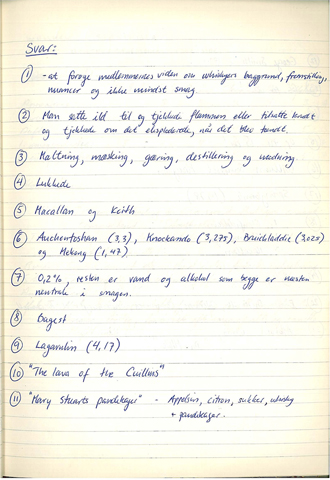 Svar:
① -at forøge medlemmernes viden om whiskyens baggrund, fremstilling,
nuancer og ikke mindst smag.
② Man satte ild til og tjekkede flammen eller tilsatte krudt
og tjekkede om det eksploderede, når det blev tændt.
③ Maltning, mæskning, gæring, destillering og modning
④ Lukkede
⑤ Macallan og Keith
⑥ Auchentoshan (3,3), Knockando (3,275), Bruichladdie (3,025)
og Mekong (1,47)
⑦ 0,2%, resten er vand og alkohol som begge er næsten
neutrale i smagen.
⑧ Bagest
⑨ Lagavulin (4,17)
⑩ "The lava of the Cuillins"
⑪ "Mary Stuarts pandekager" - Appelsin, citron, sukker, whisky
+ pandekager.